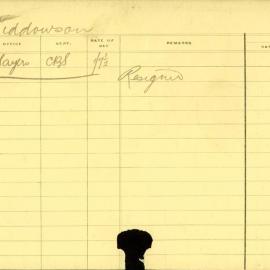 iddowson
OFFICE DEPT. DATE OF DEC REMARKS DAT
layers CBS
Resigned